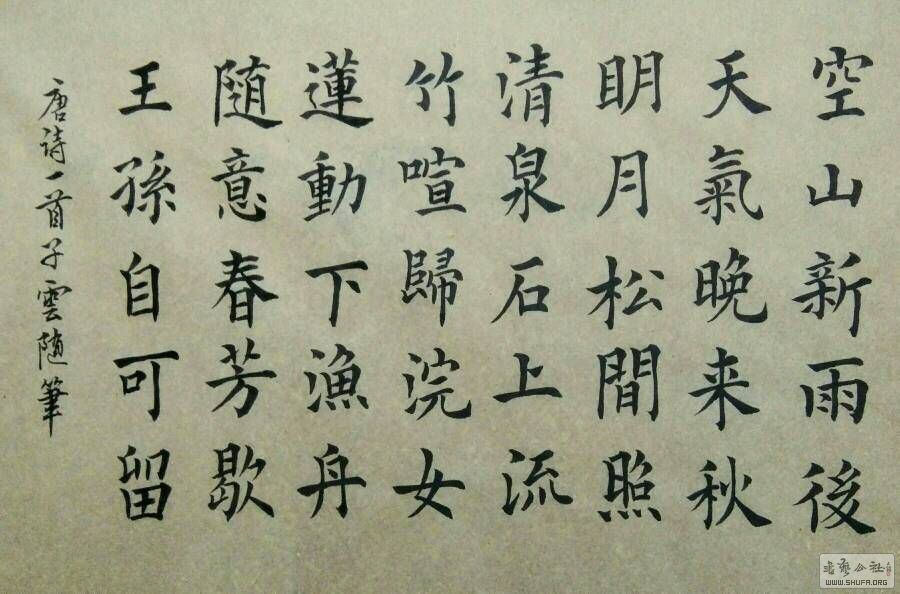 空山新雨後
天氣晚来秋
明月松間照
清泉石上流
竹喧歸浣女
蓮動下漁舟
随意春芳歇
王孫自可留
唐詩一首子雲随筆
书艺公社
WWW.SHUFA.ORG